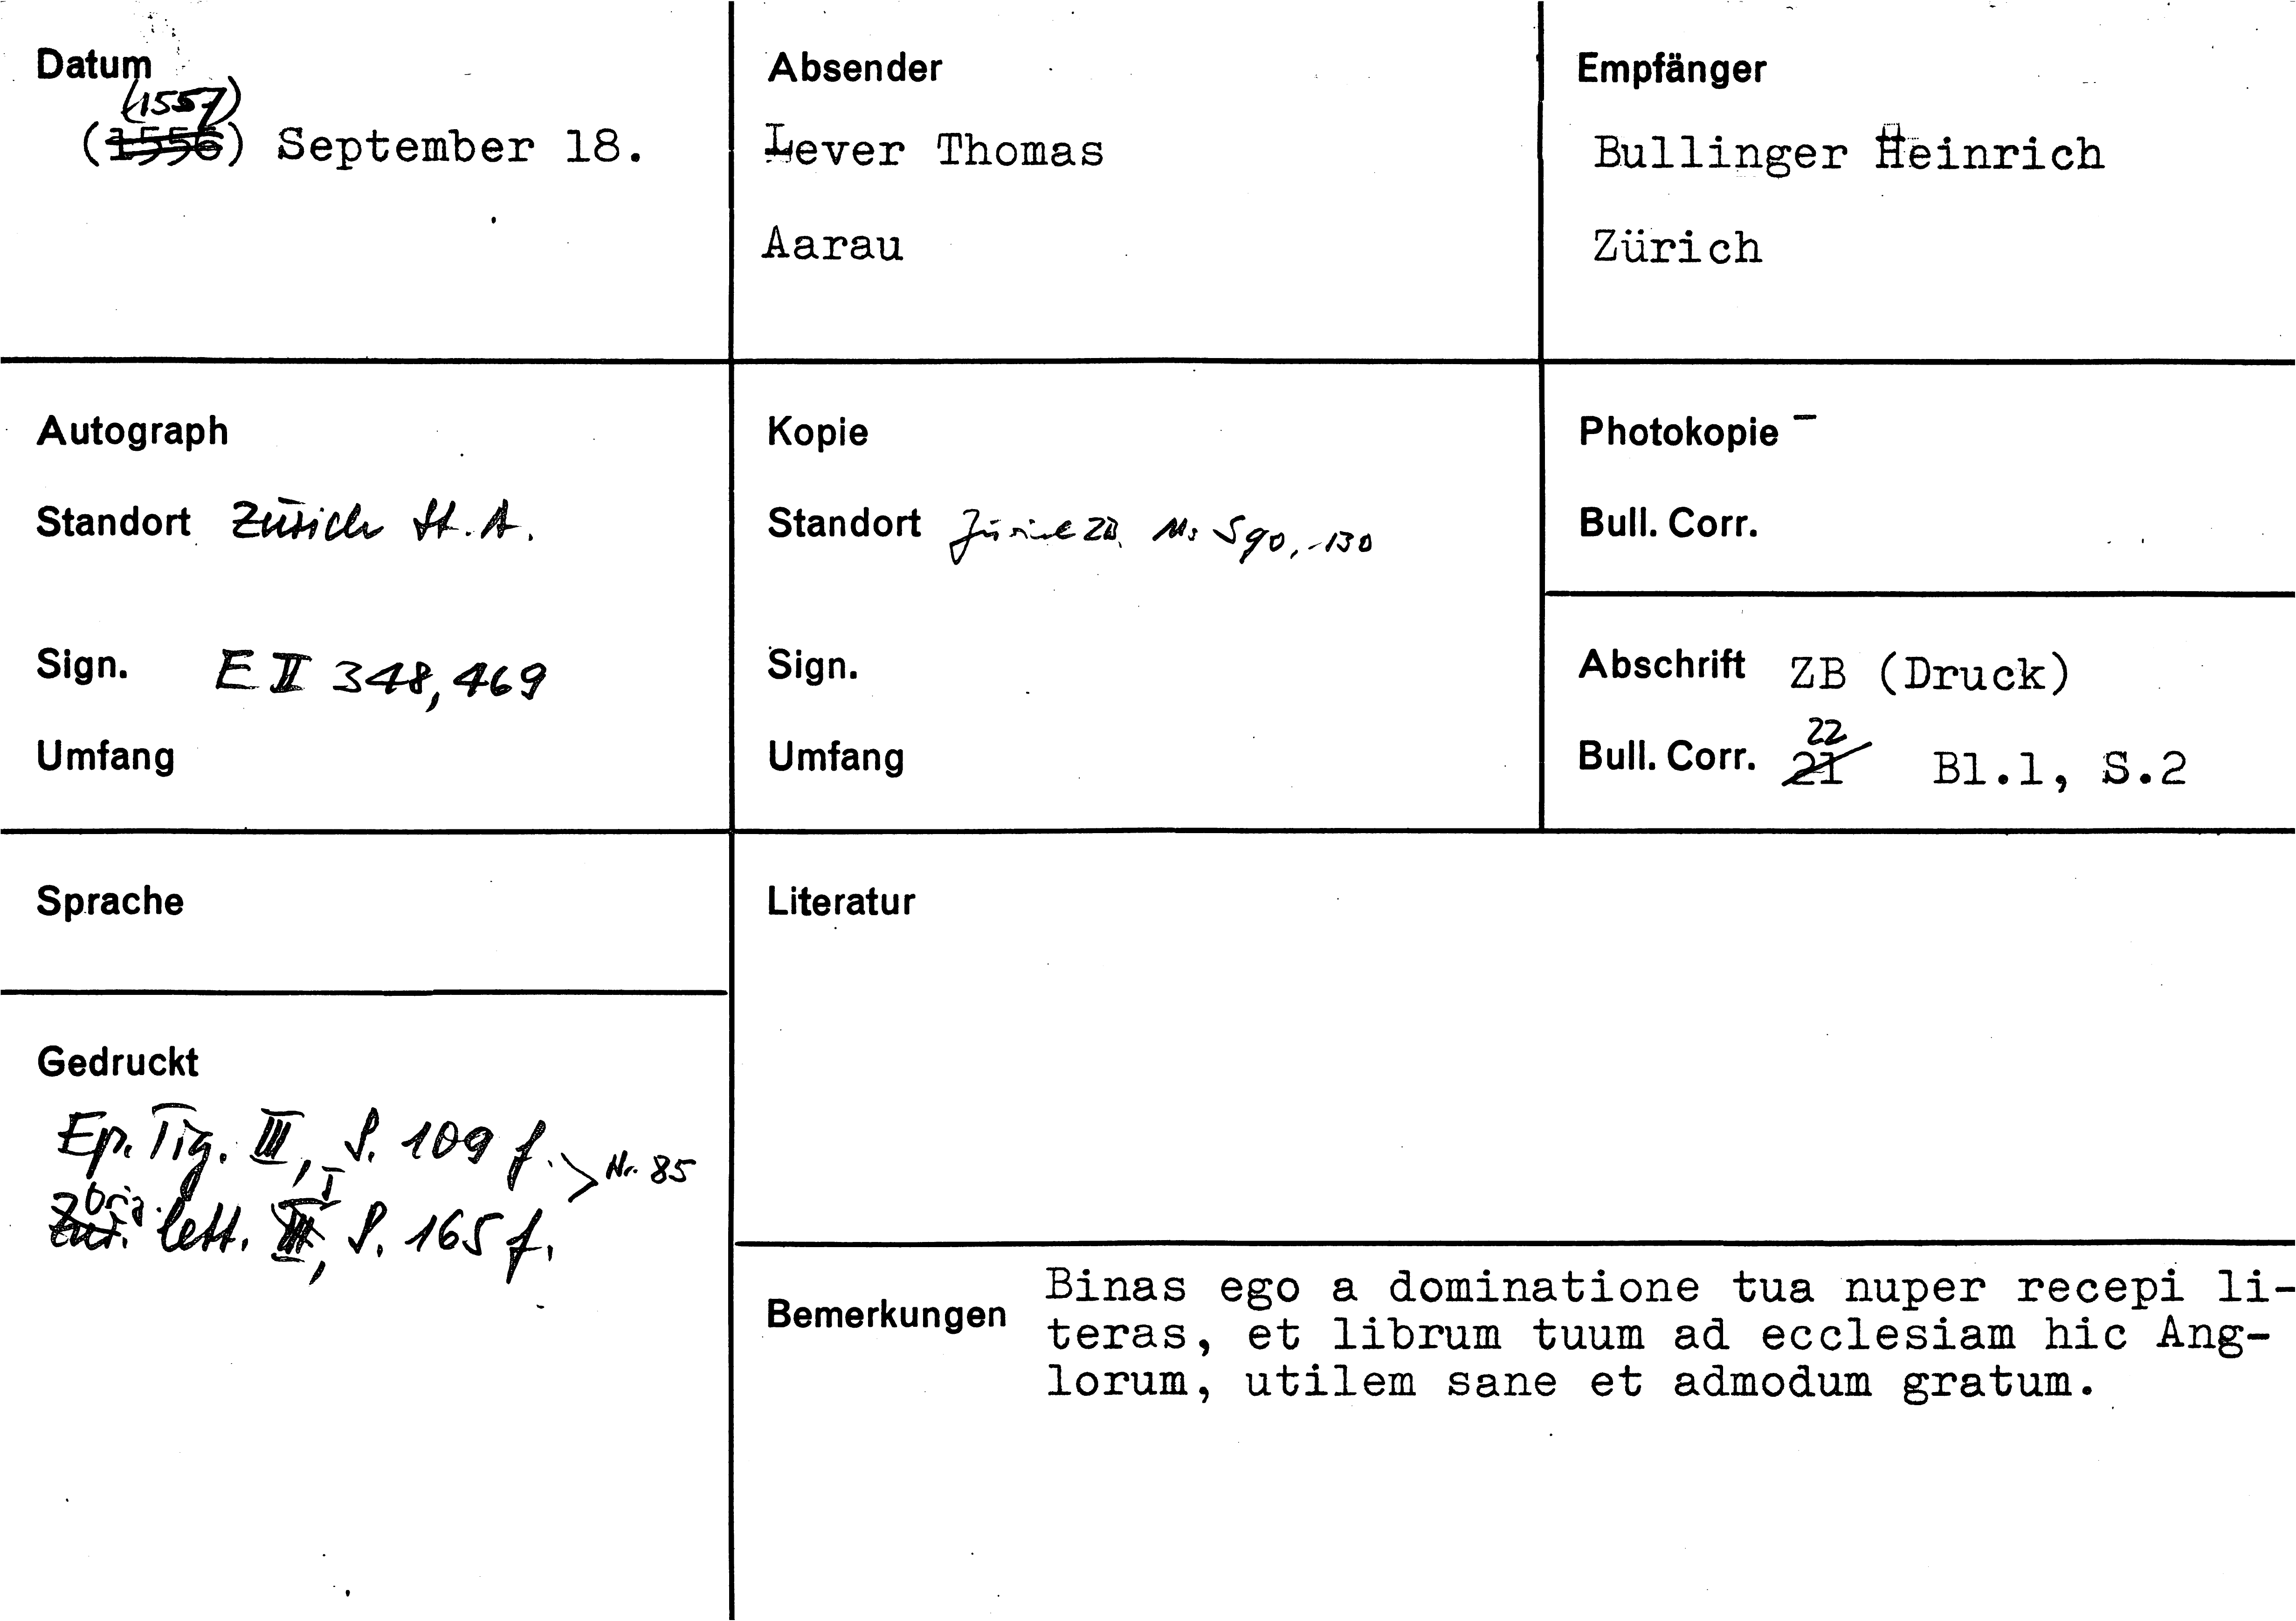 Datum
(1557)
(1556) September 18.
Absender
Lever Thomas
Aarau
Empfänger
Bullinger Heinrich
Zürich
Autograph
Standort Zürich St. A.
Sign. E II 348, 469
Umfang
Kopie
Standort Zürich ZB, Ms S 90, 130
Sign.
Umfang
Photokopie –
Bull. Corr.
Abschrift ZB (Druck)
22
Bull. Corr. 21 Bl.1, S.2
Sprache
Gedruckt
Ep. Tig. III, S. 109 f. > Nr. 85
orig. I
Zür. lett. III, S. 165 f.
Literatur
Bemerkungen
Binas ego a dominatione tua nuper recepi li-
teras, et librum tuum ad ecclesiam hic Ang-
lorum, utilem sane et admodum gratum.